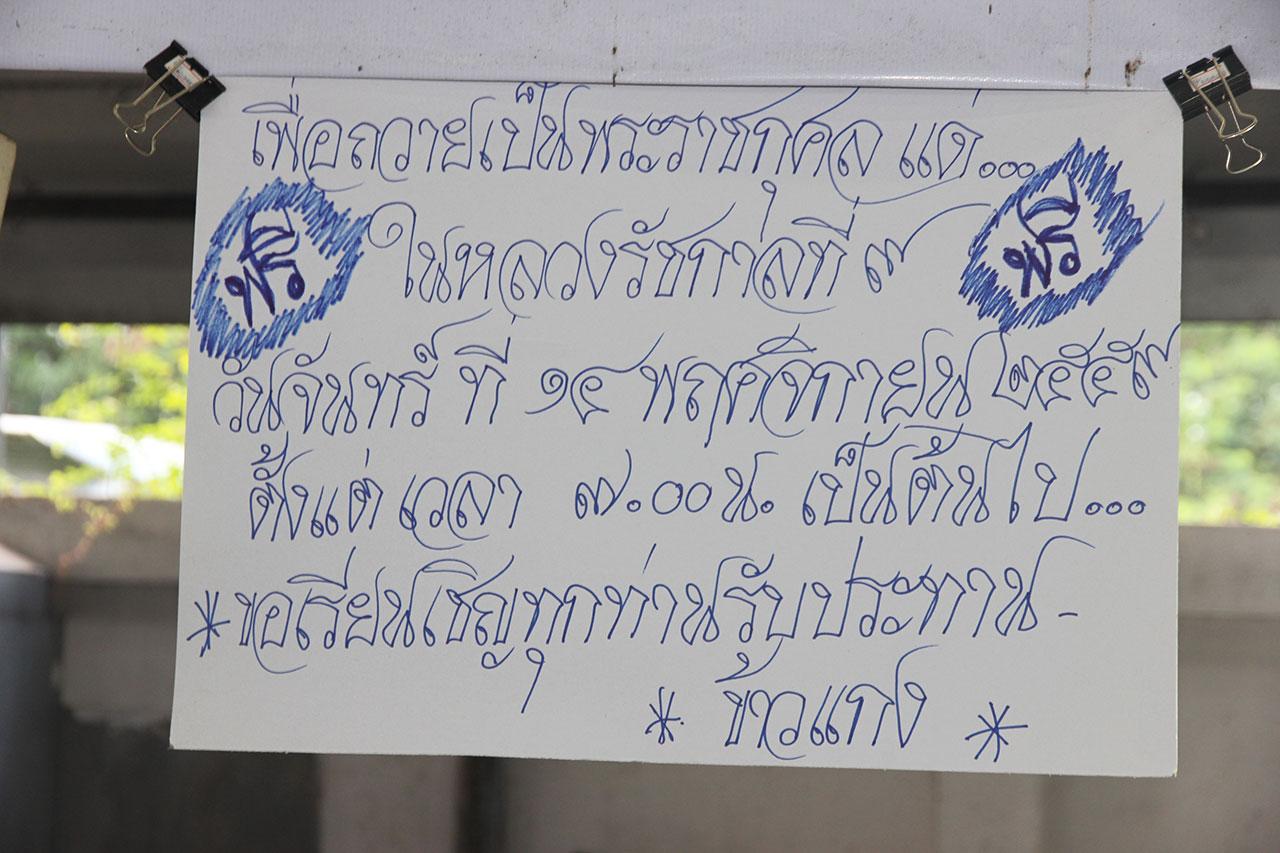 เพื่อถวายเป็นพระราชกุศล แด่...
ฟรี ในหลวงรัชกาลที่ ๙ ฟรี
วันจันทร์ ที่ ๑๔ พฤศจิกายน ๒๕๕๙
ตั้งแต่ เวลา ๗.๐๐ น. เป็นต้นไป...
*ขอเรียนเชิญทุกท่านรับประทาน-
* ข้าวแกง *